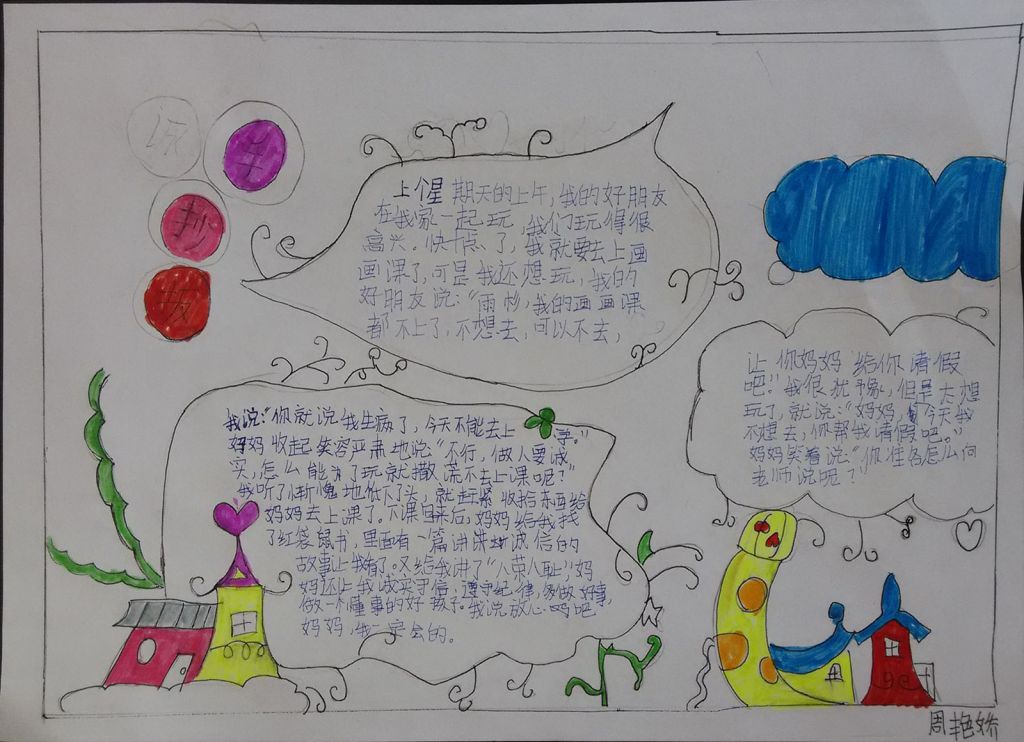 手
抄
报
上个星期天的上午,我的好朋友
在我家一起玩,我们玩得很
高兴。快十点了,我就要去上画
画课了,可是我还想玩,我的
好朋友说:“雨杉,我的画画课
都不上了,不想去,可以不去,
让你妈妈给你请假
吧”我很犹豫,但是太想
玩了,就说:“妈妈,今天我
不想去,你帮我请假吧。”
妈妈笑着说:“你准备怎么向
老师说呢?
我说:“你就说我生病了,今天不能去上学。”
妈妈收起笑容严肃地说“不行,做人要诚
实,怎么能为了玩就撒谎不去上课呢?”
我听了惭愧地低下了头,就赶紧收拾东西给
妈妈去上课了。下课回来后,妈妈给我找
了红袋鼠书,里面有一篇讲诚信的
故事让我看了。又给我讲了“八荣八耻”,妈
妈还让我诚实守信,遵守纪律,多做好事,
做一个懂事的好孩子。我说放心吧
妈妈,我一定会的。
周艳娇